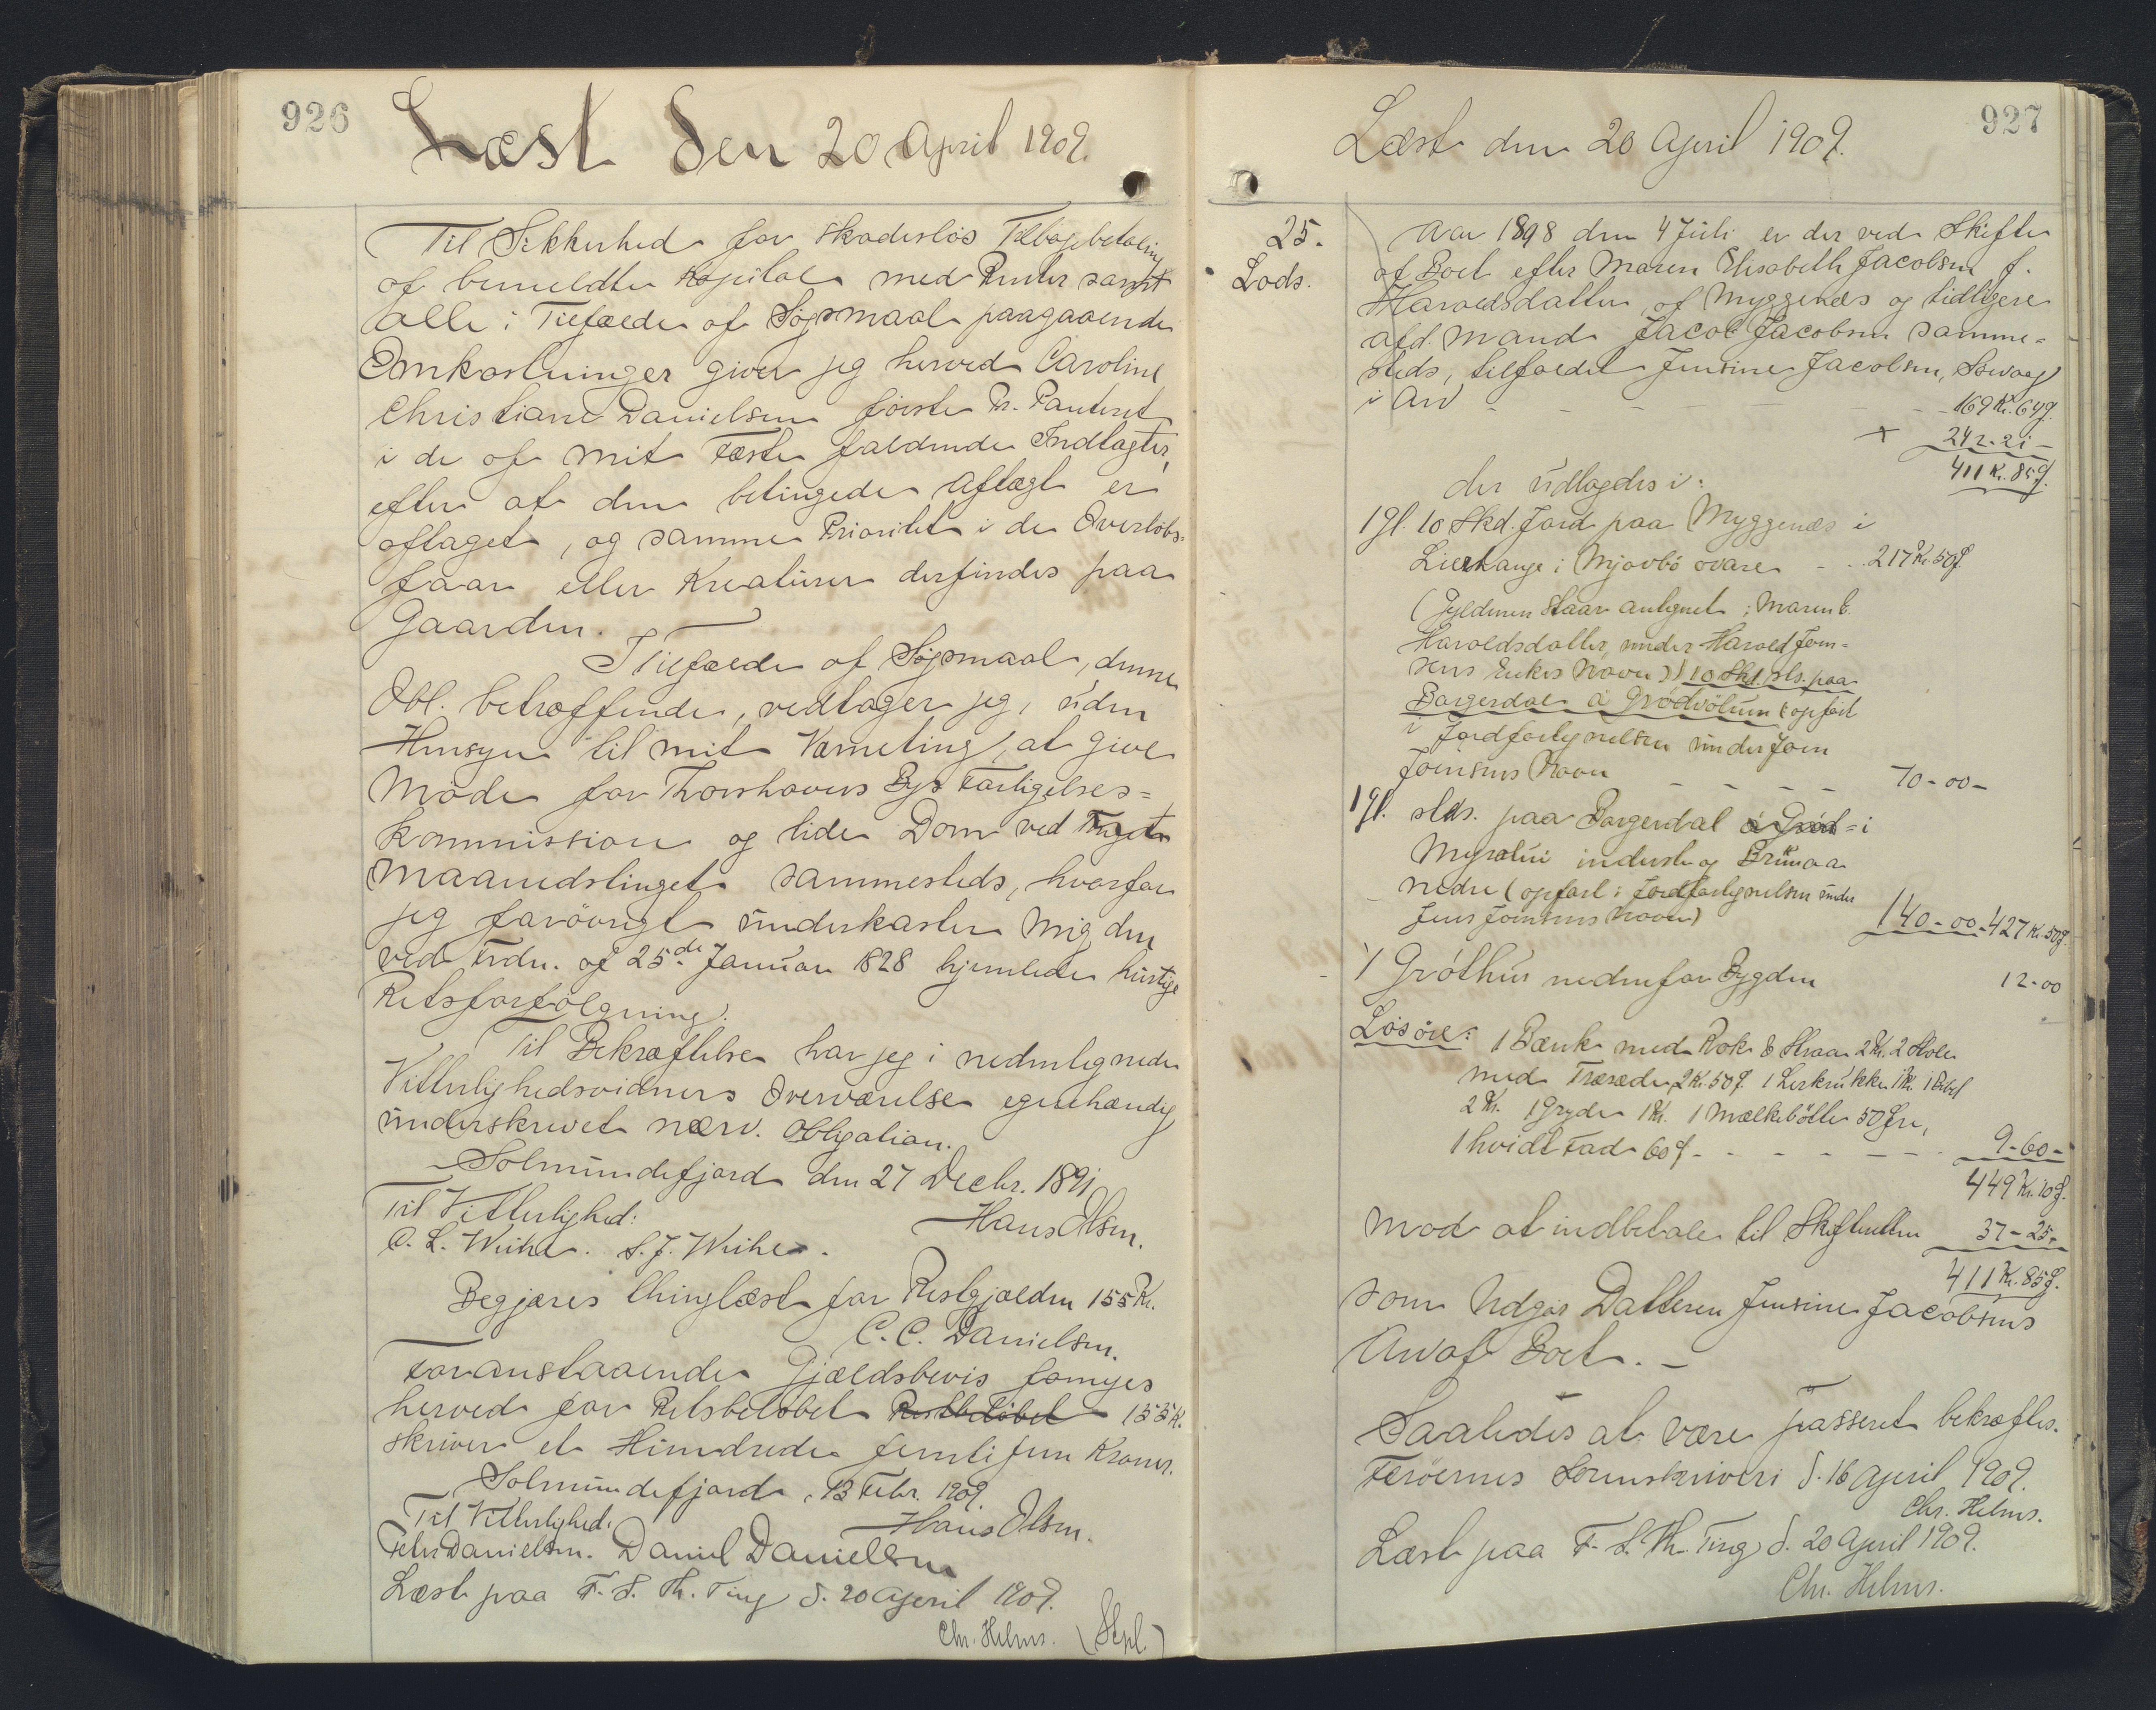 926
Læst den 20 April 1909.
Til Sikkerhed for skadeslös Tilbagebetaling
af bemeldte Kapital med Renter samt
alle i Tilfælde af Søgsmaal paagaaende
Omkostninger giver jeg herved Caroline
Christiane Danielsen første Pr. Panteret
i de af mit Fæste faldende Indtægter,
efter at den betingede Aftægt er
aftaget, og samme Prioritet i de Overløbs-
faar eller Kreaturer derfindes paa
Gaarden.
I Tilfælde af Søgsmaal, denne
Obl. betræffende, vedtager jeg, uden
Hensyn til mit Værneting, at give
Møde for Thorshavns Bys Forligelses=
kommission og lide Dom ved
Maanedstinget sammesteds, hvorfor
jeg forövrigt underkaster mig den
ved Frdn. af 25de Januar 1828 hjemlede hurtige
Retsforfölgning.
Til Bekræftelse har jeg i nedenlignede
Vitterlighedsvidners Overværelse egenhændig
underskrevet nærv. Obligation.
Solmundefjord den 27 Decbr. 1891
Til Vitterlighed: Hans Olsen.
C. L. Weihe. S. J. Weihe.
Begjæres thinglæst for Restgjælden 155 Kr.
C. C. Danielsen.
Foranstaaende Gjældsbevis fornyes
herved for Retsbeløbet Restbeløbet 155 K.
skriver et Hundrede femti fem Kroner.
Solmundefjord, 13 Febr. 1909.
Til Vitterlighed. Hans Olsen.
Danielsen. Daniel Danielsen
Læst paa F. S. Th. Ting d. 20 April 1909.
Chr. Helms. (Stpl.)
927
Læst den 20 April 1909.
25.
Lods.
Aar 1898 den 4 Juli er der ved Skifte
af Boet efter Maren Elisabeth Jacobsen f.
Haroldsdatter af Myggenæs og tidligere
afd. Mand Jacob Jacobsen samme-
steds, tilfaldet Jensine Jacobsen, Sørvaag
i Arv - - - - 169 Kr. 64 Ø.
+ 242 - 21 -
411 K. 85 Ø.
der udlagdes i:
1 Gl. 10 Skd. Jord paa Myggenæs i
i Mjovbö ovare - - 217 Kr. 50 Ø
(Gyldenen staar antegnet i Maren E.
Haroldsdatter, under Harold Joen=
sens Enkes Navn) 1 10 Skd. sts. paa
Borgerdal á Grödvölum (opført
i Jordfortegnelsen under Joen
Joensens Navn - - - - 70 - 00 -
1 Gl. stds. paa Borgerdal á Gröd = i
inderste og
nedre (opført i Jordfortegnelsen under
Jens Joensens Navn) 140 - 00 - 427 Kr. 50 Ø.
1 Gróthus nedenfor Bygden 12 - 00
Lösöre: 1 Bænk med Rok & Skraa 2 Kr. 2 Stole
med Træsæde 2 Kr. 50 Ø. 1 Lerkrukke 1 Kr. 1 Bibel
2 Kr. 1 Gryde 1 Kr. 1 Mælkebötte 50 Øre,
1 hvidt Fad 60 Ø - - - - - - 9 - 60 -
449 Kr. 10 Ø.
Mod at indbetale til Skifteretten 37 - 25 -
411 Kr. 85 Ø.
som Udgör Datteren Jensine Jacobsens
Arv af Boet. -
Saaledes at være passeret bekræftes.
Færöernes Sorenskriveri d. 16 April 1909.
Chr. Helms.
Læst paa F. S. Th. Ting d. 20 April 1909.
Chr. Helms.